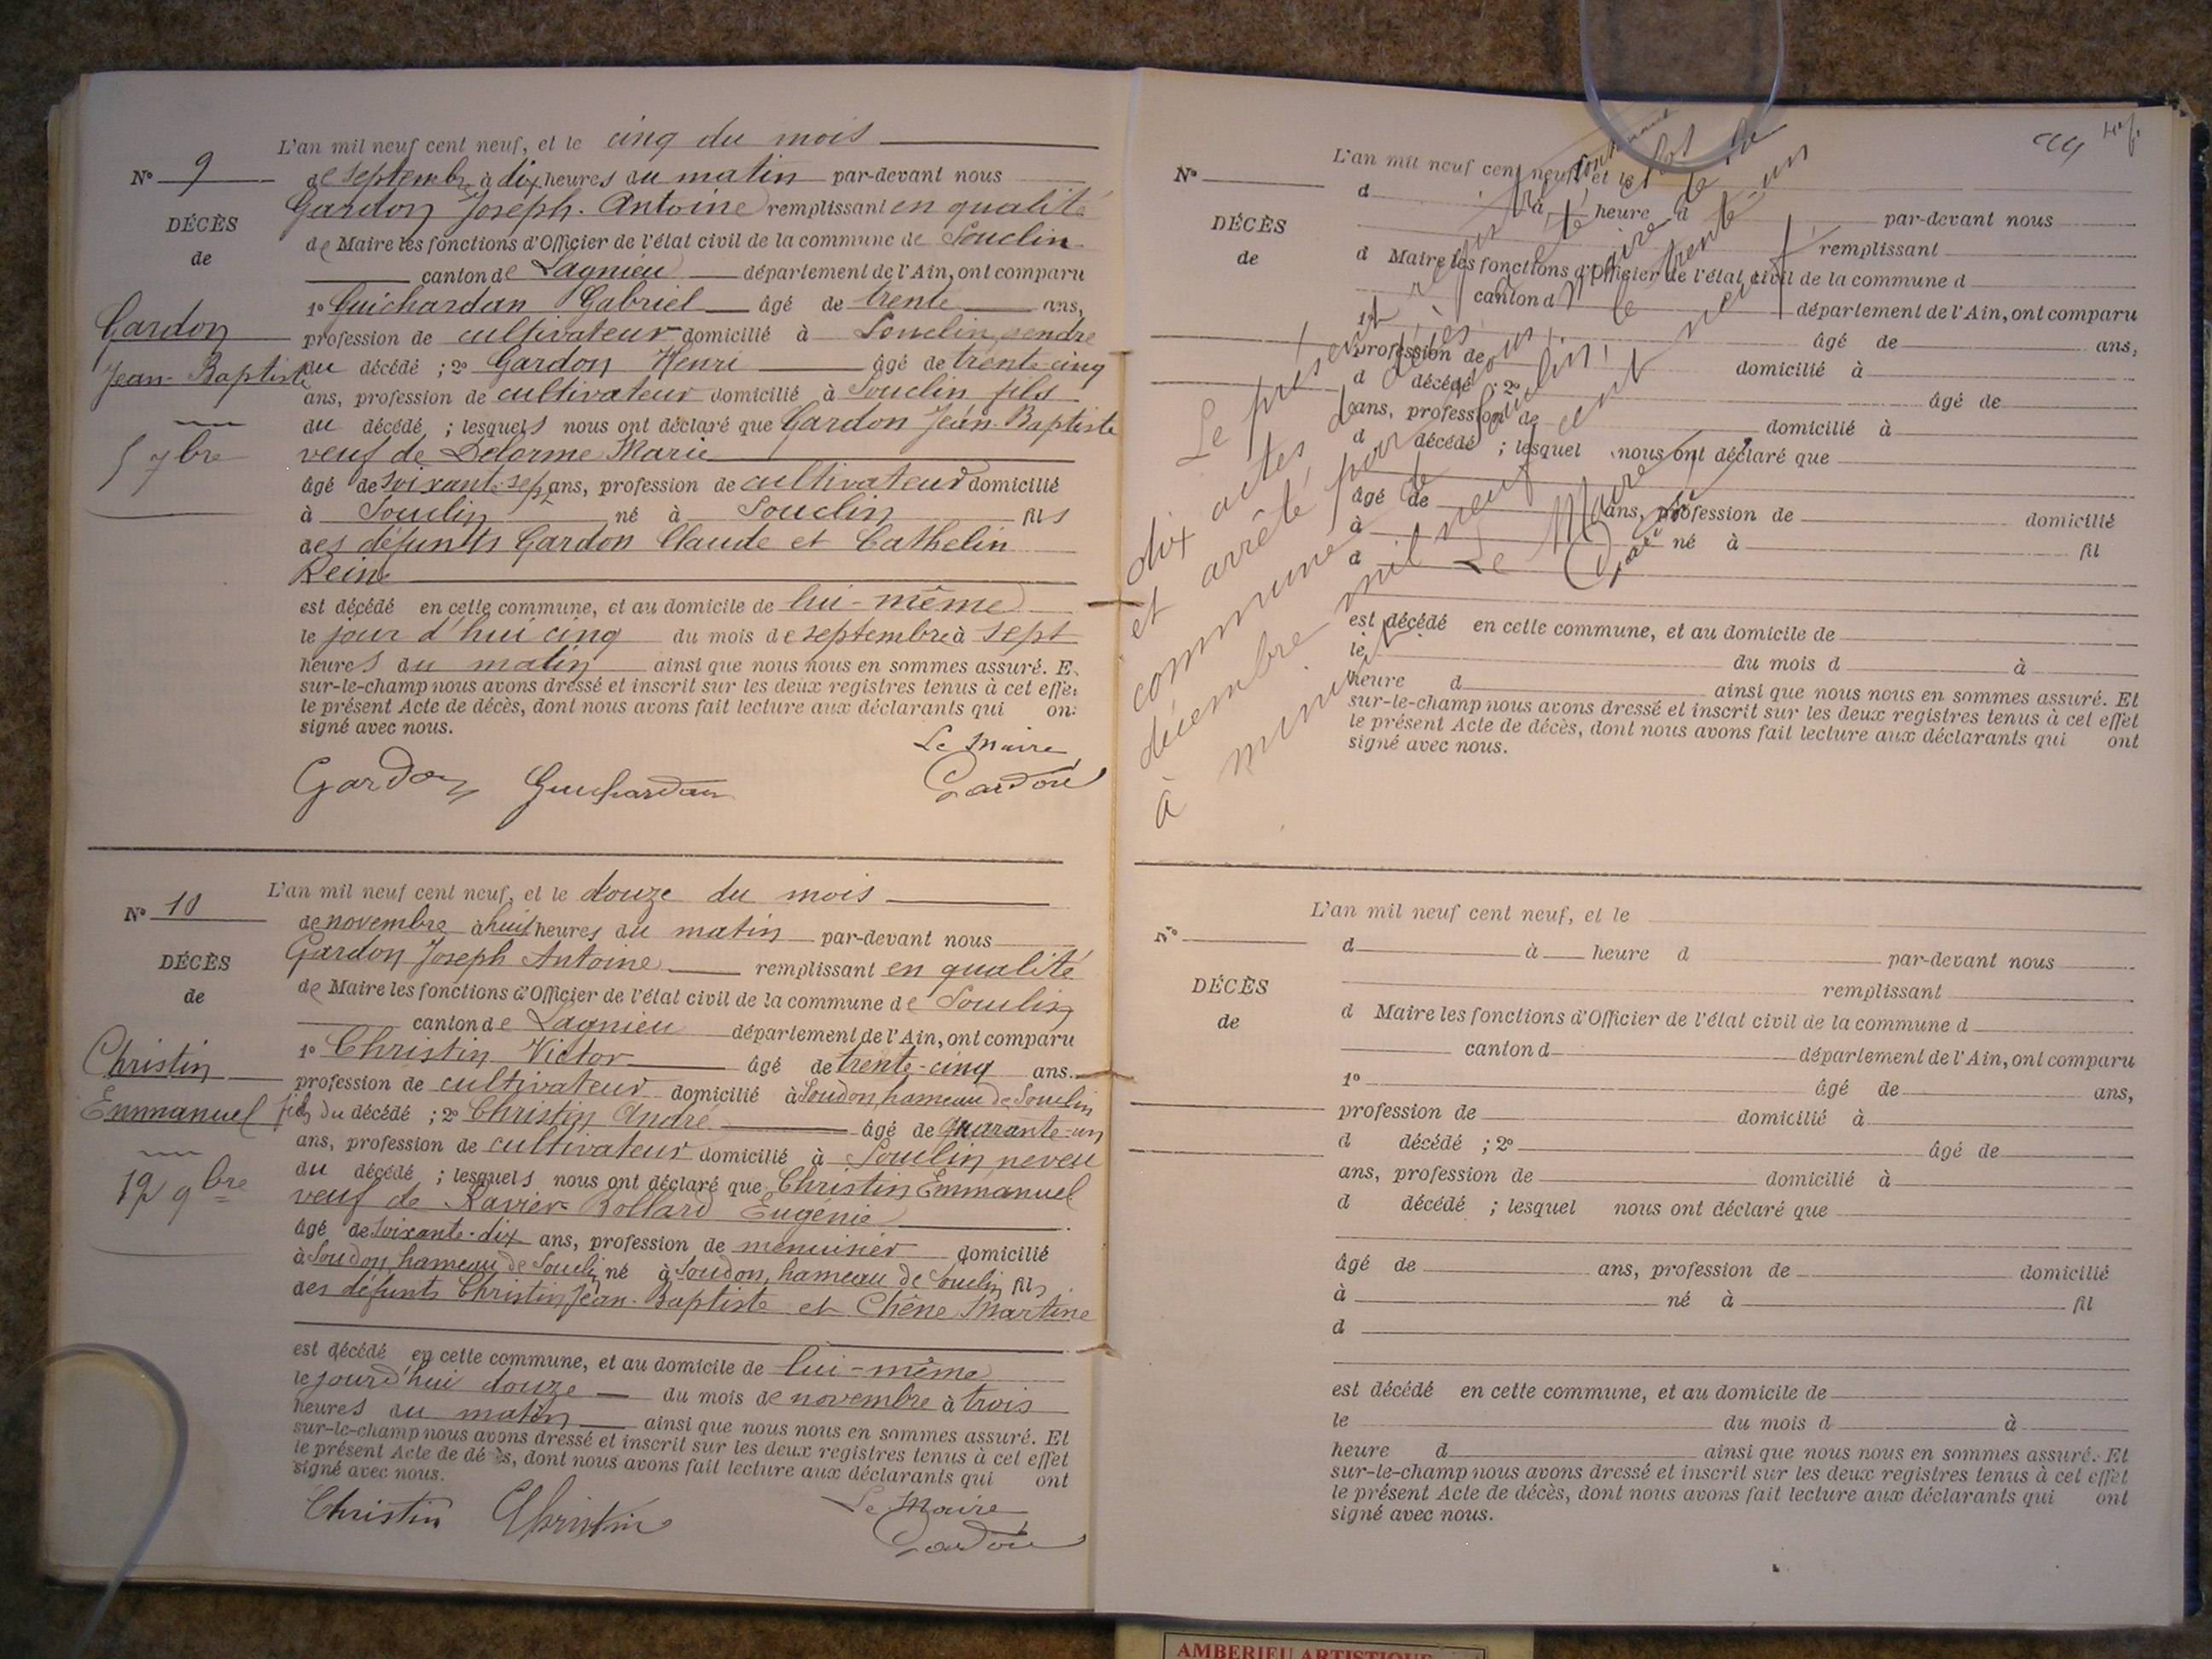 L'an mil neuf cent neuf, et le cinq du mois
N° 9 de septembre à dix heures du matin par-devant nous
Gardon Joseph-Antoine remplissant en qualité
DÉCÈS
de Maire les fonctions d'Officier de l'état civil de la commune de Souclin
de
canton de Lagnieu département de l'Ain, ont comparu
1° Guichardan Gabriel âgé de trente ans,
Gardon
profession de cultivateur domicilié à Souclin, gendre
Jean-Baptiste
du décédé ; 2° Gardon Henri âgé de trente-cinq
ans, profession de cultivateur domicilié à Souclin fils
du décédé ; lesquels nous ont déclaré que Gardon Jean-Baptiste
5 7bre
veuf de Delorme Marie
âgé de soixante-sept ans, profession de cultivateur domicilié
à Souclin né à Souclin fils
des défunts Gardon Claude et Cathelin
Reine
est décédé en cette commune, et au domicile de lui-même
le jour d'hui cinq du mois de septembre à sept
heures du matin ainsi que nous nous en sommes assuré. E
sur-le-champ nous avons dressé et inscrit sur les deux registres tenus à cet effet
le présent Acte de décès, dont nous avons fait lecture aux déclarants qui on
signé avec nous.
Le Maire
Gardon Guichardan Gardon
L'an mil neuf cent neuf, et le douze du mois
N° 10
de novembre à huit heures du matin par-devant nous
Gardon Joseph Antoine remplissant en qualité
DÉCÈS
de Maire les fonctions d'Officier de l'état civil de la commune de Souclin
de
canton de Lagnieu département de l'Ain, ont comparu
1° Christin Victor âgé de trente-cinq ans.
Christin
profession de cultivateur domicilié à Soudon, hameau de Souclin
Emmanuel
fils du décédé ; 2° Christin André âgé de quarante-un
ans, profession de cultivateur domicilié à Souclin, neveu
du décédé ; lesquels nous ont déclaré que Christin Emmanuel
12 9bre
veuf de Ravier-Bollard Eugénie
âgé de soixante-dix ans, profession de menuisier domicilié
à Soudon, hameau de Souclin né à Soudon, hameau de Souclin fils
des défunts Christin Jean-Baptiste et Chêne Martine
est décédé en cette commune, et au domicile de lui-même
le jourd'hui douze du mois de novembre à trois
heures du matin ainsi que nous nous en sommes assuré. Et
sur-le-champ nous avons dressé et inscrit sur les deux registres tenus à cet effet
le présent Acte de dé ès, dont nous avons fait lecture aux déclarants qui ont
signé avec nous.
Christin Christin Le Maire
Gardon
L'an mil neuf cent neuf, et le
N°
d à heure d par-devant nous
DÉCÈS
remplissant
de
d Maire les fonctions d'Officier de l'état civil de la commune d
canton d département de l'Ain, ont comparu
1° âgé de ans,
profession de domicilié à
d décédé ; 2° âgé de
ans, profession de domicilié à
d décédé ; lesquel nous ont déclaré que
âgé de ans, profession de domicilié
à né à fil
d
est décédé en cette commune, et au domicile de
le du mois d à
heure d ainsi que nous nous en sommes assuré. Et
sur-le-champ nous avons dressé et inscrit sur les deux registres tenus à cet effet
le présent Acte de décès, dont nous avons fait lecture aux déclarants qui ont
signé avec nous.
Le présent registre contenant
dix actes de décès a été clos
et arrêté par nous, maire de la
commune de Souclin, le trente-un
décembre mil neuf cent neuf
à minuit
Le Maire
Gardon
L'an mil neuf cent neuf, et le
N°
d à heure d par-devant nous
DÉCÈS
remplissant
de
d Maire les fonctions d'Officier de l'état civil de la commune d
canton d département de l'Ain, ont comparu
1° âgé de ans,
profession de domicilié à
d décédé ; 2° âgé de
ans, profession de domicilié à
d décédé ; lesquel nous ont déclaré que
âgé de ans, profession de domicilié
à né à fil
d
est décédé en cette commune, et au domicile de
le du mois d à
heure d ainsi que nous nous en sommes assuré. Et
sur-le-champ nous avons dressé et inscrit sur les deux registres tenus à cet effet
le présent Acte de décès, dont nous avons fait lecture aux déclarants qui ont
signé avec nous.
AMBERIEU ARTISTIQUE